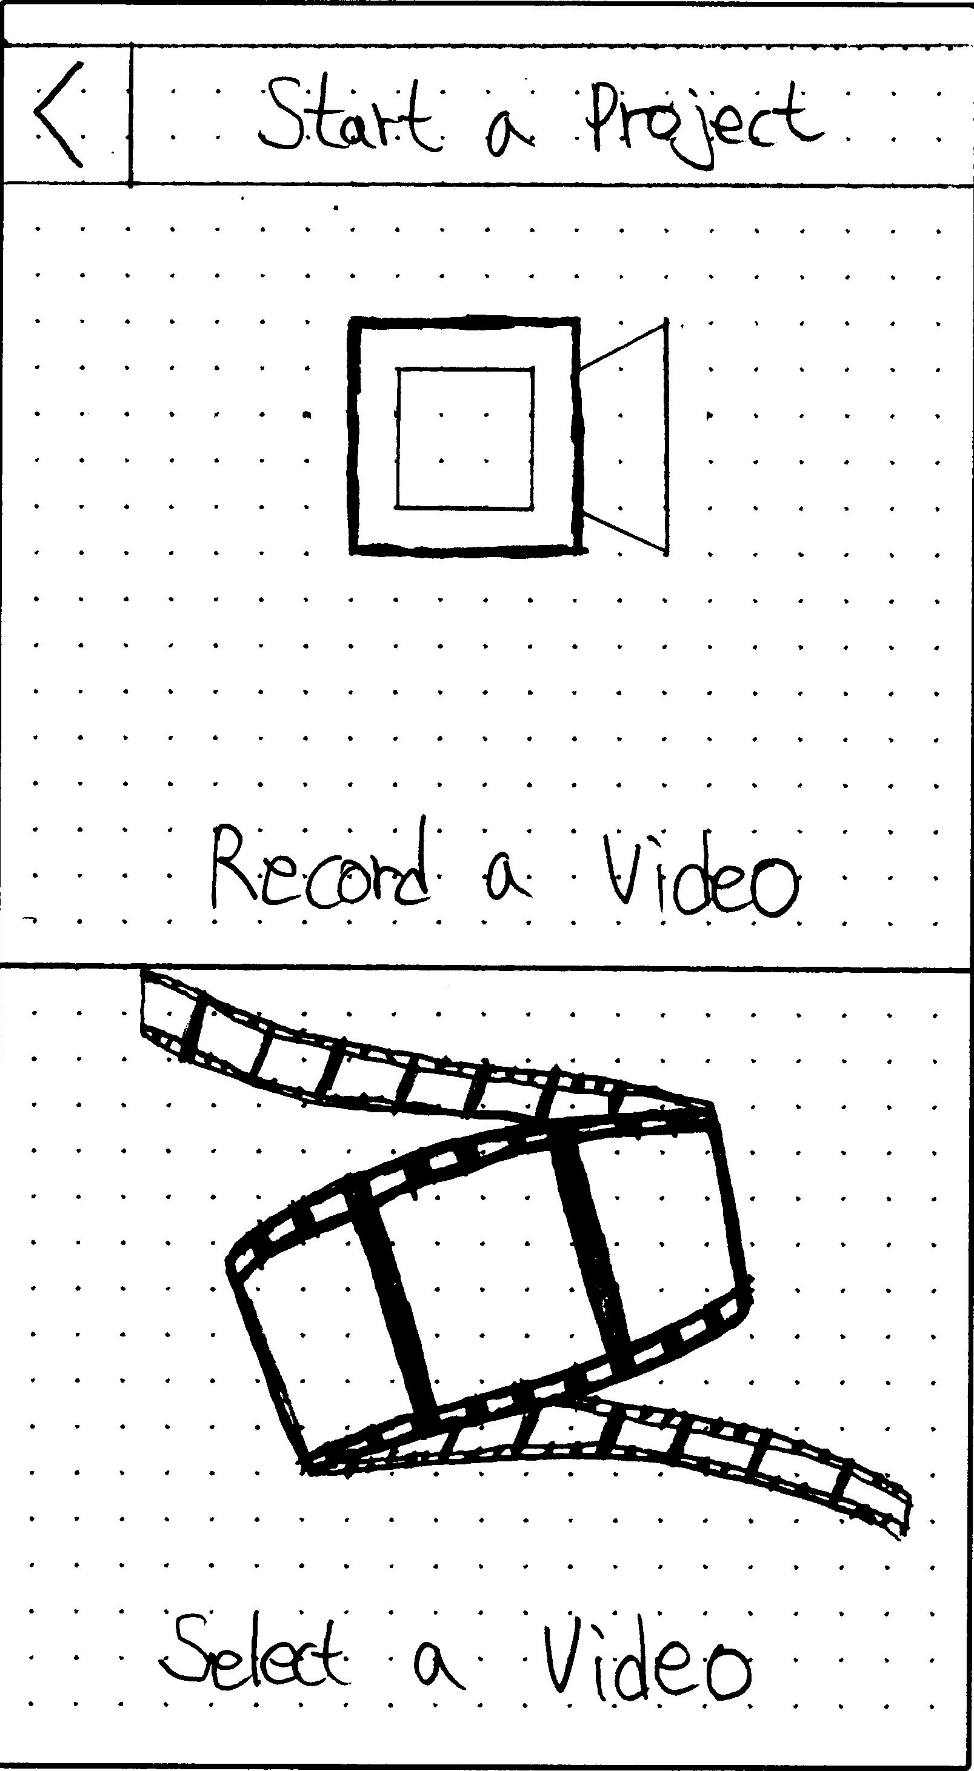 Start a Project
Record a Video
Select a Video